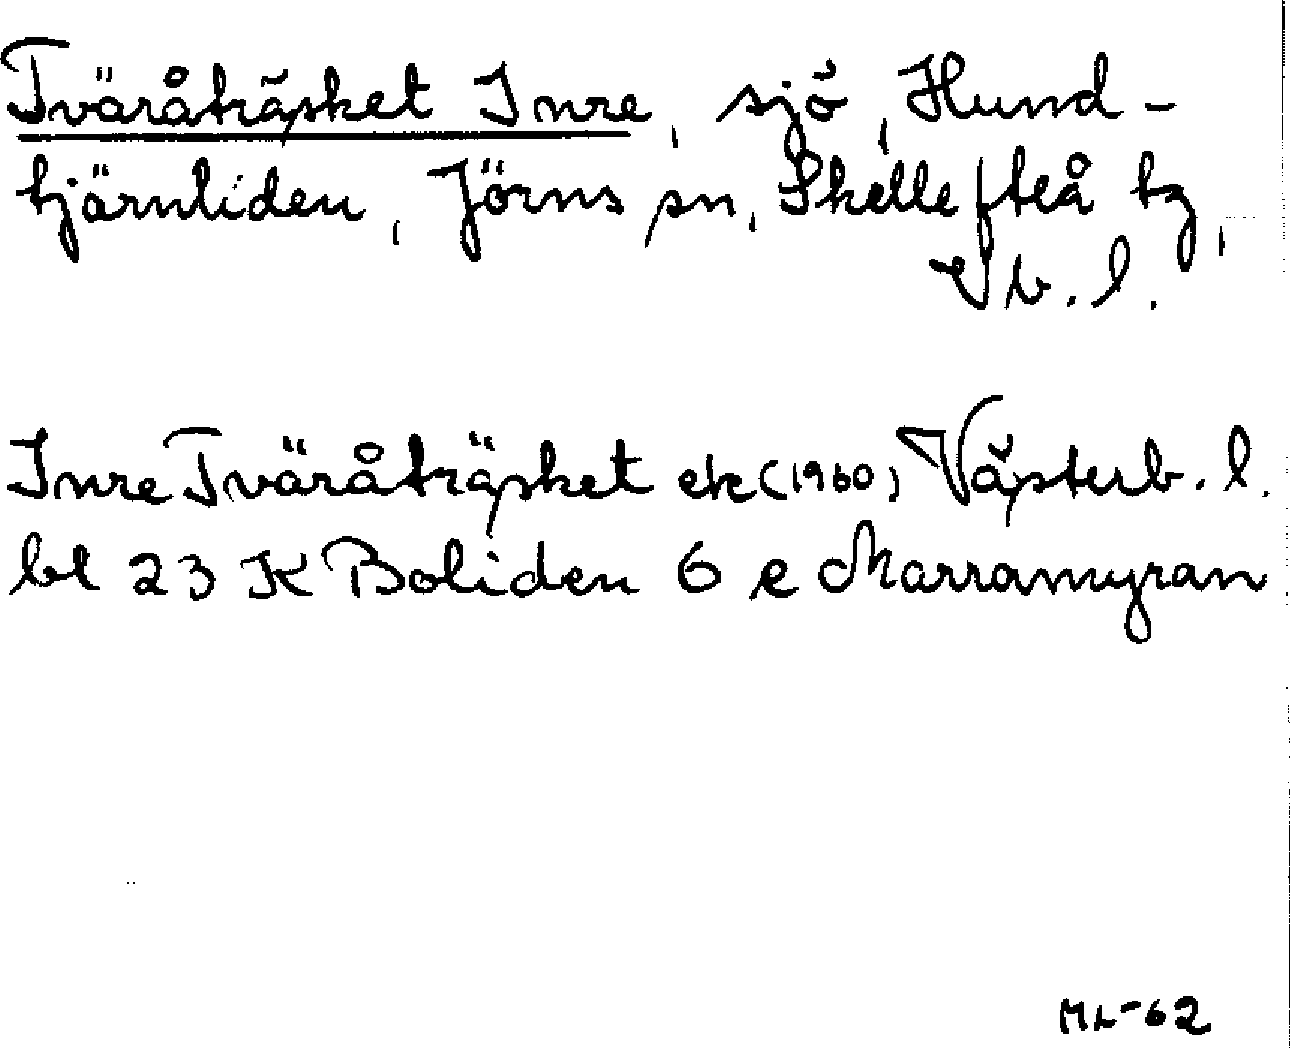 Tväråträsket Inre, sjö, Hund-
tjärnliden, Jörns sn, Skellefteå tg,
Vb. l.
Inre Tväråträsket ek (1960), Västerb. l.
bl 23 K Boliden 6 e Marramyran
ML-62